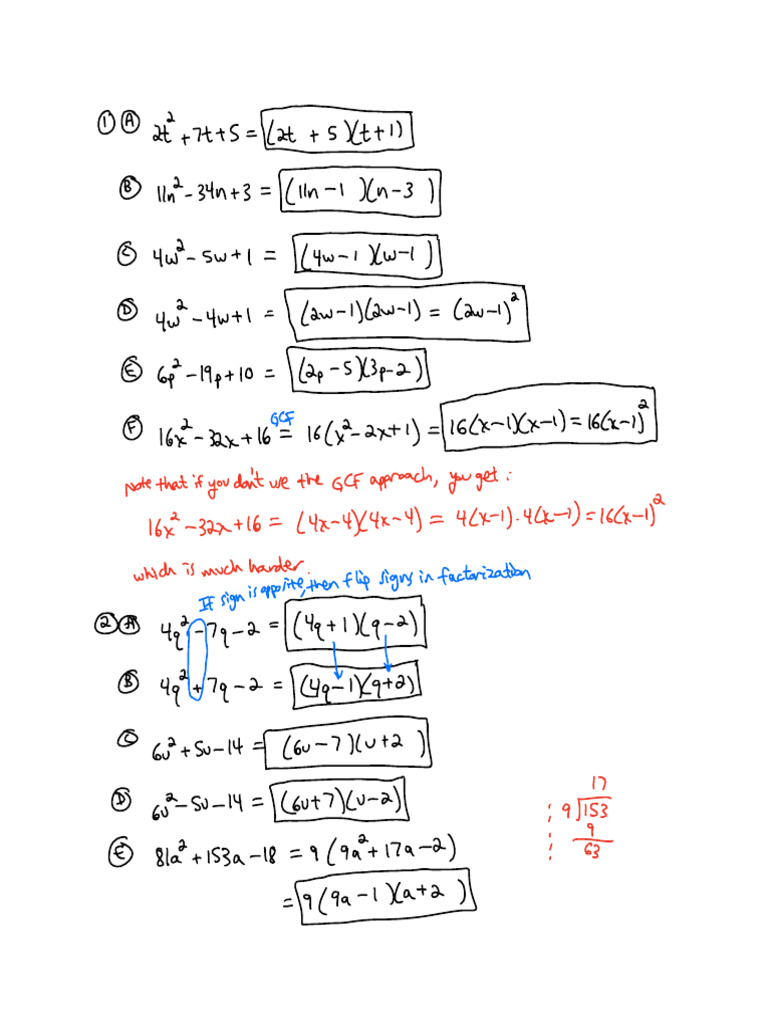 ① Ⓐ 2t² + 7t + 5 = (2t + 5)(t + 1)
Ⓑ 11n² - 34n + 3 = (11n - 1)(n - 3)
Ⓒ 4w² - 5w + 1 = (4w - 1)(w - 1)
Ⓓ 4w² - 4w + 1 = (2w - 1)(2w - 1) = (2w - 1)²
Ⓔ 6p² - 19p + 10 = (2p - 5)(3p - 2)
GCF
Ⓕ 16x² - 32x + 16 = 16(x² - 2x + 1) = 16(x - 1)(x - 1) = 16(x - 1)²
Note that if you don't use the GCF approach, you get:
16x² - 32x + 16 = (4x - 4)(4x - 4) = 4(x - 1) · 4(x - 1) = 16(x - 1)²
which is much harder.
If sign is opposite, then flip signs in factorization
② Ⓐ 4q² - 7q - 2 = (4q + 1)(q - 2)
Ⓑ 4q² + 7q - 2 = (4q - 1)(q + 2)
Ⓒ 6u² + 5u - 14 = (6u - 7)(u + 2)
Ⓓ 6u² - 5u - 14 = (6u + 7)(u - 2)
17
9 153
9
63
Ⓔ 81a² + 153a - 18 = 9(9a² + 17a - 2)
= 9(9a - 1)(a + 2)